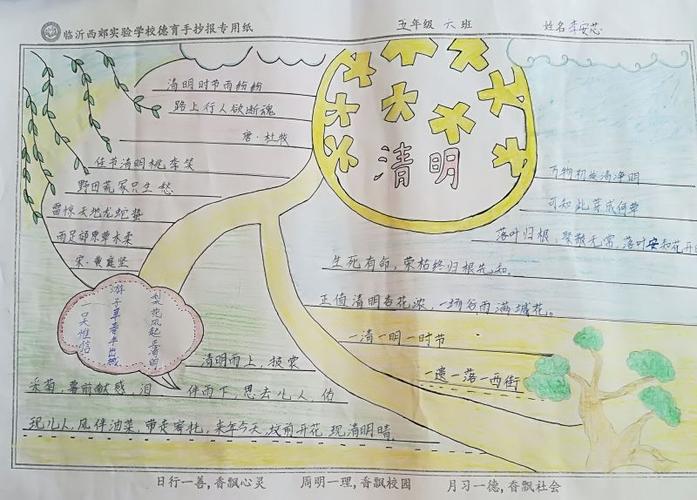 临沂西郊实验学校德育手抄报专用纸 五年级 六班 姓名 李安芯
清明时节雨纷纷
路上行人欲断魂
唐·杜牧
佳节清明桃李笑
野田荒冢只生愁
雷惊天地龙蛇蛰
雨足郊原草木柔
宋·黄庭坚
清明
万物初
清净明
可知此
落叶归根,聚散无常,落叶安知花开
生死有命,荣枯终归根先知,
正值清明杏花浓,一场谷雨满城花。
一清一明一时节
一遗一落一西街
梨花风起正清明
游子寻春半出城
吴惟信
清明雨上,披裳
采菊,墓前献感,泪 伴雨下,思去儿人,仿
现儿人,风伴油菜,带走寄托,来年今天,坟前开花,现清明晴,
日行一善,香飘心灵 周明一理,香飘校园 月习一德,香飘社会